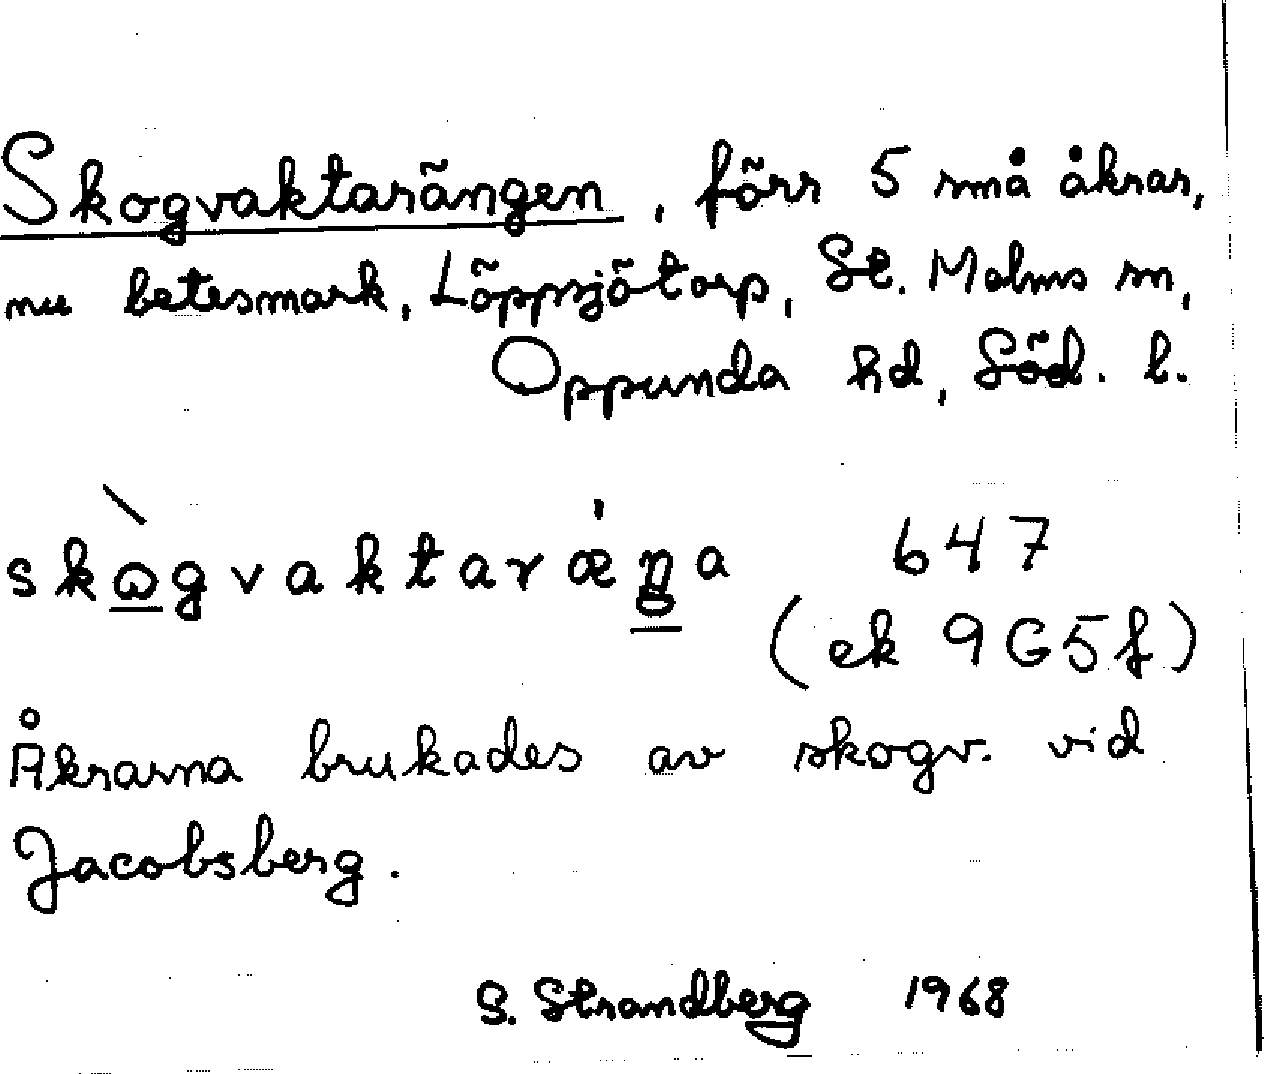 Skogvaktarängen, förr 5 små åkrar,
nu betesmark, Löppsjötorp, St. Malms sn,
Oppunda hd, Söd. l.
647
(ek 9G5f)
Åkrarna brukades av skogv. vid
Jacobsberg.
S. Strandberg 1968